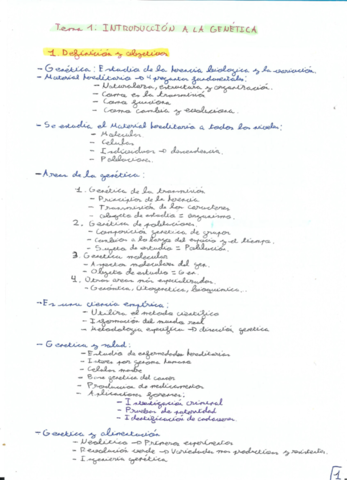 Tema 1: INTRODUCCIÓN A LA GENÉTICA
1. Definición y objetivos
- Genética: Estudio de la herencia biológica y la variación.
- Material hereditario → 4 preguntas fundamentales:
- Naturaleza, estructura y organización.
- Como es la transmisión
- Como funciona
- Como cambia y evoluciona.
- Se estudia el Material hereditario a todos los niveles:
- Moléculas
- Células
- Individuos → descendencia
- Poblaciones.
- Áreas de la genética:
1. Genética de la transmisión
- Principios de la herencia
- Transmisión de los caracteres
- Objeto de estudio = organismo.
2. Genética de poblaciones.
- Composición genética de grupos
- Cambios a lo largo del espacio y el tiempo.
- Sujeto de estudio = Población.
3. Genética molecular
- Aspectos moleculares del gen.
- Objeto de estudio = Gen.
4. Otras áreas más especializadas.
- Genómica, Citogenética, bioquímica.
- Es una ciencia empírica:
- Utiliza el método científico
- Información del mundo real
- Metodología específica → disección genética
- Genética y salud:
- Estudio de enfermedades hereditarias
- genoma humano
- Células madre
- Base genética del cáncer
- Producción de medicamentos
- Aplicaciones forenses:
- Investigación criminal
- Pruebas de paternidad
- Identificación de cadáveres.
- Genética y alimentación
- Neolítico → Primeros experimentos
- Revolución verde → Variedades más productivas y resistentes.
- Ingeniería genética
1